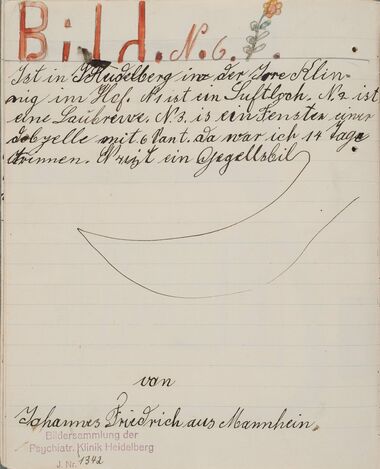 Bild. N. 6.
Ist in Heidelberg in der Irre Klin-
nig im Hof. N1 ist ein Luftloch. N. 2 ist
eine Laubrewe. N. 3. is ein Fenster einer
dobzelle mit 6 Kant. da war ich 14 Tage
drinnen. ist ein
von
Johannes Friedrich aus Mannheim.
Bildersammlung der
Psychiatr. Klinik Heidelberg
J. Nr. 1342